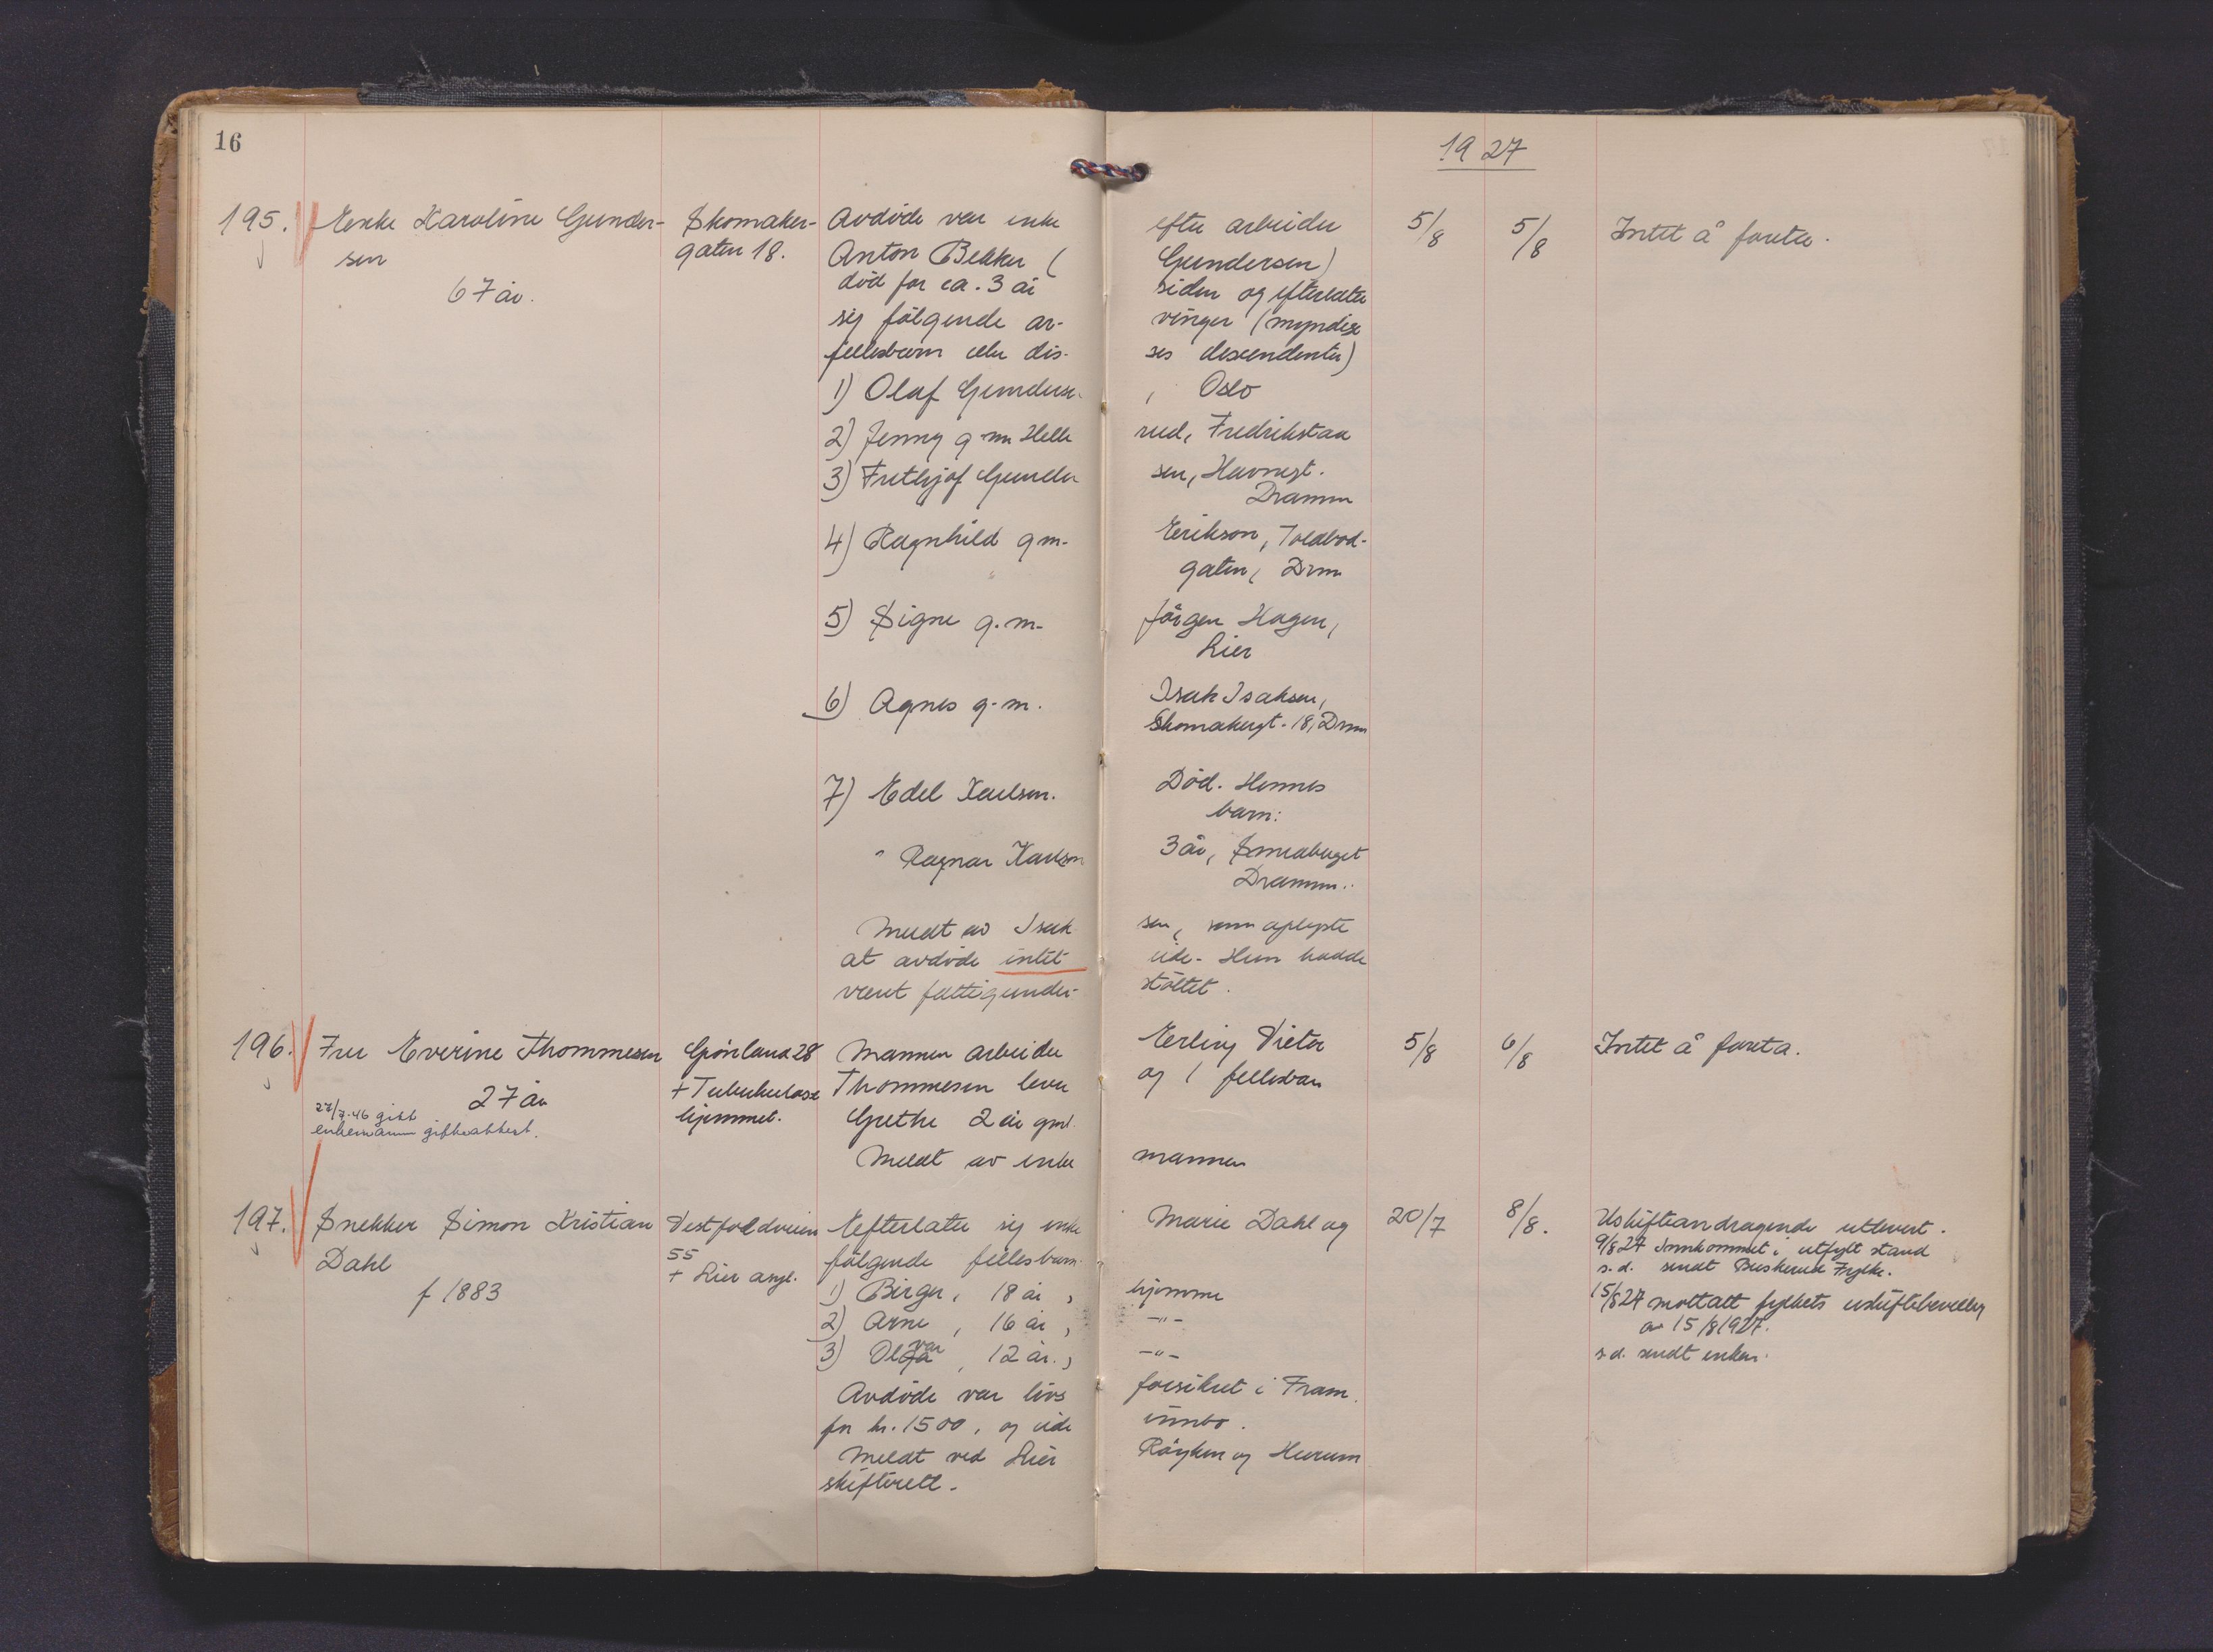 16
1927
195. Enke Karoline Gunder-
sen
67 år.
Skomaker-
gaten 18.
Avdöde var enke efter arbeider
Anton Bekker (Gundersen)
död for ca. 3 år siden og efterlater
sig fölgende arvinger (myndige
fellesbarn eller disses descendenter)
1) Olaf Gundersen, Oslo
2) Jenny g.m. Hellerud, Fredrikstad
3) Frithjof Gundersen, Havnegt.
Dramm
4) Ragnhild g.m. Erikson, Toldbod-
gaten, Drm
5) Signe g.m. Jörgen Hagen,
Lier
6) Agnes g.m. Isak Isaksen,
Skomakergt. 18, Drm
7) Edel Karlsen. Död. Hennes
barn:
" Ragnar Karlsen 3 år,
Dramm.
Meldt av Isaksen, som oplyste
at avdöde intet eide. Hun hadde
vært fattigunderstöttet.
5/8
5/8
Intet å foreta.
196. Fru Everine Thommesen
27 år
27/7-46 gitt
enkemann gifteattest.
Grönland 28
+ Tuberkulose
hjemmet.
Mannen arbeider Erling Victor
Thommesen lever og 1 fellesbarn
Grethe 2 år gml.
Meldt av enkemannen
5/8
6/8
Intet å foreta.
197. Snekker Simon Kristian
Dahl
f 1883
Vestfoldveien
55
+ Lier asyl.
Efterlater sig enke Marie Dahl og
fölgende fellesbarn:
1) Birger, 18 år, hjemme
2) Arne, 16 år, -"-
3) Olga var, 12 år, -"-
Avdöde var livsforsikret i Fram
for kr. 1500, og eide innbo.
Meldt ved Lier Röyken og Hurum
skifterett.
20/7
8/8.
Uskifteandragende utlevert.
9/8 27 Innkommet i utfylt stand
s.d. sendt Buskerud Fylke.
15/8 27 mottatt fylkets uskiftebevilling
av 15/8 1927.
s.d. sendt enken.